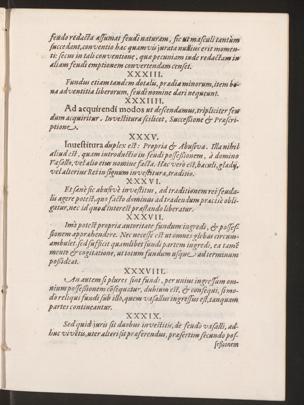 feudo redacta assumat feudi naturam, sic ut masculi tantùm
succedant, conventio hac quamvis jurata nullius erit momen-
ti: secus in tali conventione, qua pecuniam inde redactam in
aliam feudi emptionem convertendam censet.
XXXIII.
Fundus etiamtandem dotalis, prædia minorum, item bo-
na adventitia liberorum, feudi nomine dari nequeunt.
XXXIIII.
Ad acquirendi modos ut descendamus, tripliciter feu
dum acquiritur, Investitura scilicet, Successione & Præscri-
ptione.
XXXV.
Investitura duplex est: Propria & Abusiva. Illa nihil
aliud est, quam introductio in feudi possessionem, à domino
Vasallo, vel alio eius nomine facta. Hæc verò est, baculi, gladij,
vel alterius Rei in signum investituræ, traditio.
XXXVI.
Et sanè sic abusivè investitus, ad traditionem rei feuda-
lis agere potest, quo facto dominus ad tradendum præcisè obli-
gatur, nec id quod interest præstando liberatur.
XXXVII.
Imò potest propria autoritate fundum ingredi, & possessi-
sionem apprehendere. Nec necesse est ut omnes glebas circum-
ambulet, sed sufficit quamlibet fundi partem ingredi, ea tamē
mente & cogitatione, ut totum fundum usque ad terminum
possideat.
XXXVIII.
An autem si plures sint fundi, per unius ingressum om-
nium possessionem cōsequatur, dubium est, & consequi, si mo-
do reliqui fundi sub illo, quem vasallus ingressus est, tanquam
partes contineantur.
XXXIX.
Sed quid juris sit duobus investitis, de feudo vasalli, ad-
huc viventis, uter alteri sit præferendus, præsertim secundo pos-
sessionem